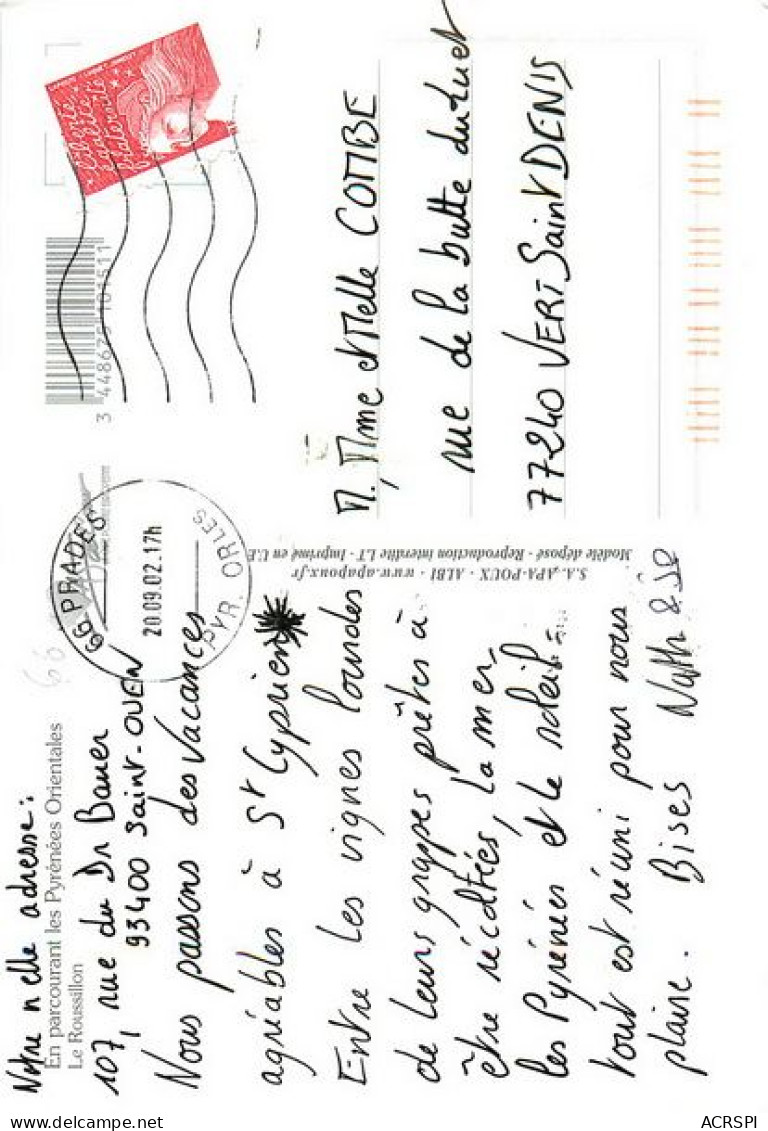 Notre nelle adresse :
En parcourant les Pyrénées Orientales
Le Roussillon
107, rue du Dr Bauer
93400 Saint-OUEN
Nous passons des vacances
agréables à St Cyprien
Entre les vignes lourdes
de leurs grappes prêtes à
être récoltées, la mer,
les Pyrénées et le soleil
tout est réuni pour nous
plaire. Bises Nath & Jé
66 PRADES
20.09.02.17h
PYR. ORLES
S.A. APA-POUX - ALBI - www.apapoux.fr
Modèle déposé - Reproduction interdite L.T - Imprimé en U.E
liberté
égalité
fraternité
3 448675 101511
M, Mme et Melle COMBE
rue de la butte du luet
77240 VERT Saint DENIS
66
delcampe.net
ACRSPI